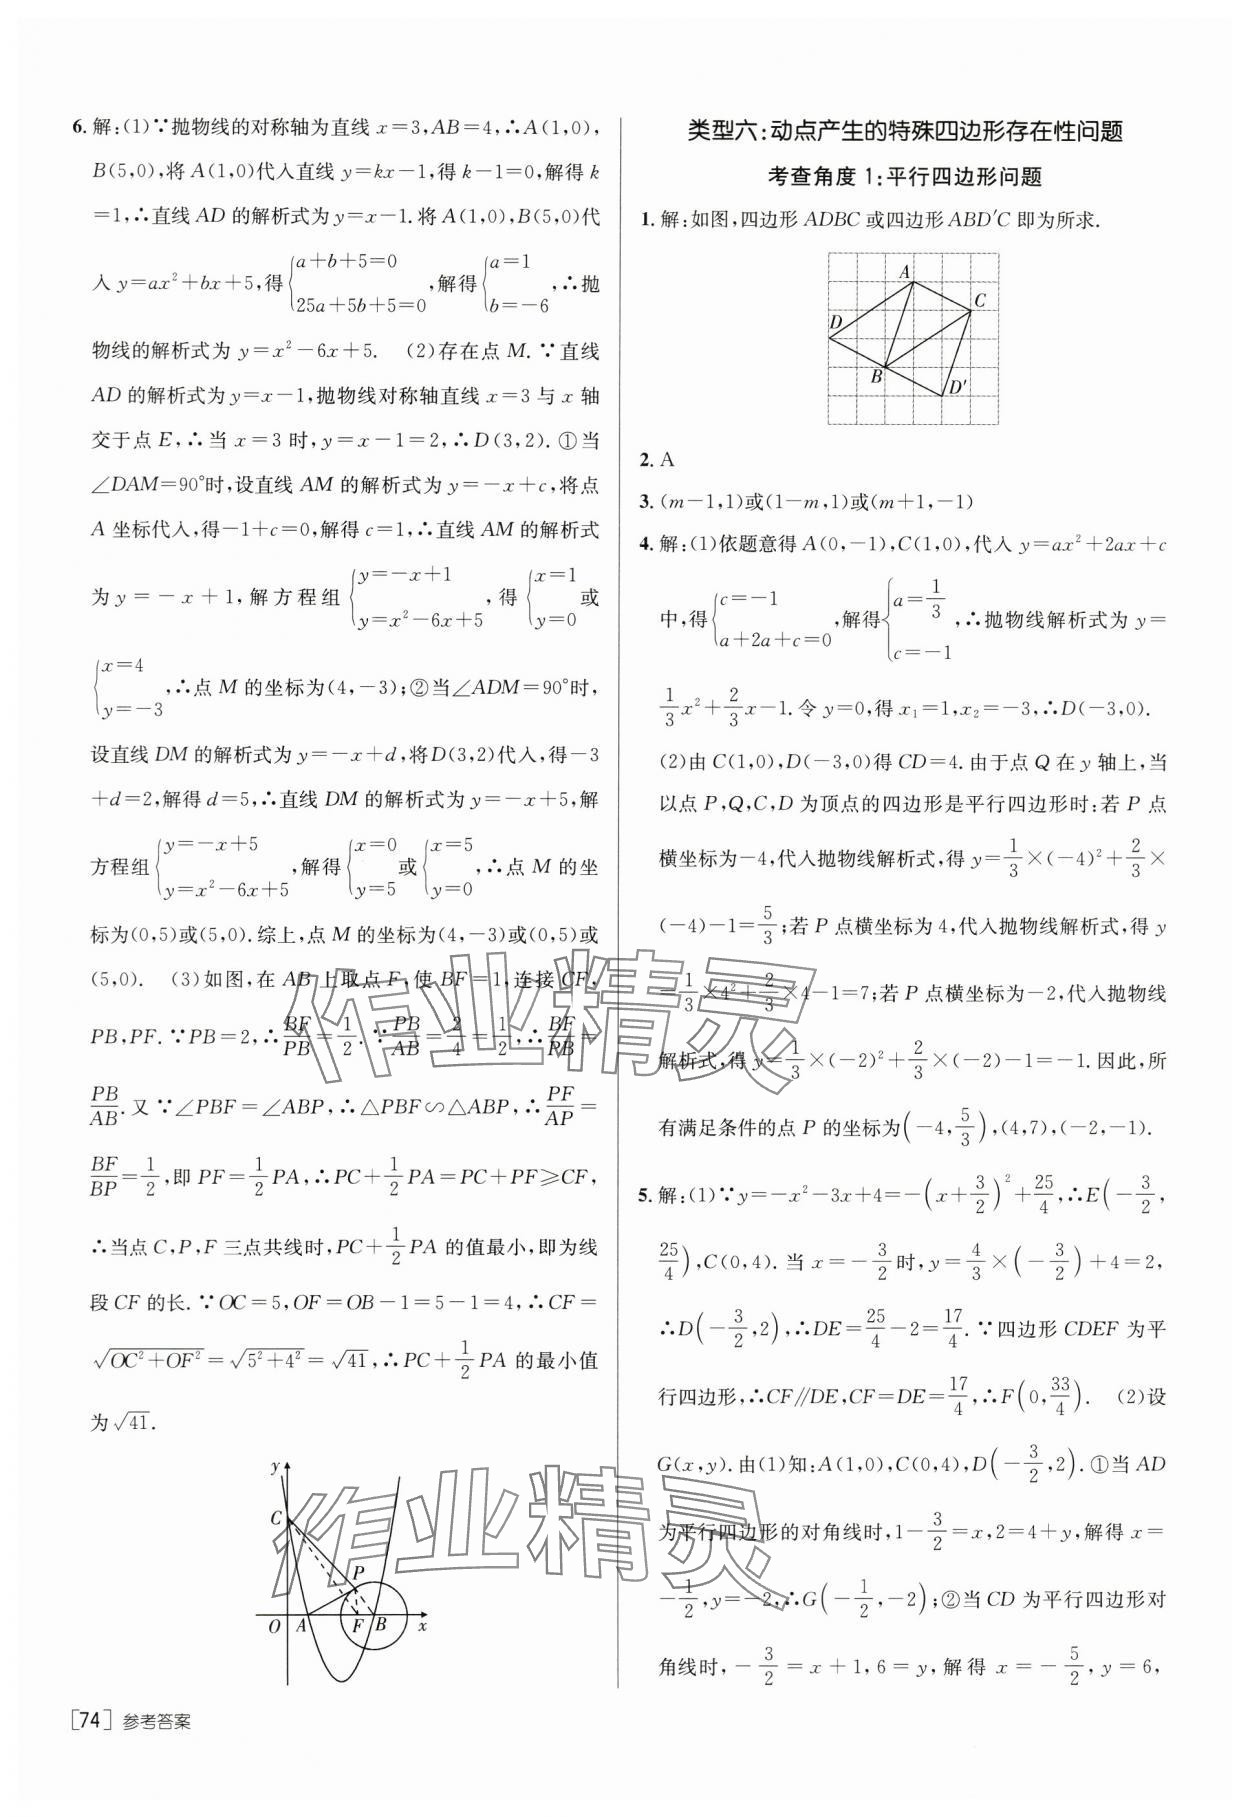 6. 解:(1)∵抛物线的对称轴为直线 x=3,AB=4,∴A(1,0),
B(5,0),将 A(1,0)代入直线 y=kx-1,得 k-1=0,解得 k
=1,∴直线 AD 的解析式为 y=x-1.将 A(1,0),B(5,0)代
入 y=ax²+bx+5,得{a+b+5=0 25a+5b+5=0,解得{a=1 b=-6,∴抛
物线的解析式为 y=x²-6x+5. (2)存在点 M.∵直线
AD 的解析式为 y=x-1,抛物线对称轴直线 x=3 与 x 轴
交于点 E,∴当 x=3 时,y=x-1=2,∴D(3,2).①当
∠DAM=90°时,设直线 AM 的解析式为 y=-x+c,将点
A 坐标代入,得-1+c=0,解得 c=1,∴直线 AM 的解析式
为 y=-x+1,解方程组{y=-x+1 y=x²-6x+5,得{x=1 y=0或
{x=4 y=-3,∴点 M 的坐标为(4,-3);②当∠ADM=90°时,
设直线 DM 的解析式为 y=-x+d,将D(3,2)代入,得-3
+d=2,解得 d=5,∴直线 DM 的解析式为 y=-x+5,解
方程组{y=-x+5 y=x²-6x+5,解得{x=0 y=5或{x=5 y=0,∴点 M 的坐
标为(0,5)或(5,0).综上,点 M 的坐标为(4,-3)或(0,5)或
(5,0). (3)如图,在 AB 上取点 F,使 BF=1,连接 CF,
PB,PF.∵PB=2,∴BF/PB=1/2.∵PB/AB=2/4=1/2,∴BF/PB=
PB/AB.又∵∠PBF=∠ABP,∴△PBF∽△ABP,∴PF/AP=
BF/BP=1/2,即 PF=1/2PA,∴PC+1/2PA=PC+PF≥CF,
∴当点 C,P,F 三点共线时,PC+1/2PA 的值最小,即为线
段 CF 的长.∵OC=5,OF=OB-1=5-1=4,∴CF=
√(OC²+OF²)=√(5²+4²)=√41,∴PC+1/2PA 的最小值
为√41.
y
C
P
O A F B x
[74] 参考答案
类型六:动点产生的特殊四边形存在性问题
考查角度 1:平行四边形问题
1. 解:如图,四边形 ADBC 或四边形 ABD′C 即为所求.
A
C
D
B
D′
2. A
3. (m-1,1)或(1-m,1)或(m+1,-1)
4. 解:(1)依题意得 A(0,-1),C(1,0),代入 y=ax²+2ax+c
中,得{c=-1 a+2a+c=0,解得{a=1/3 c=-1,∴抛物线解析式为 y=
1/3x²+2/3x-1.令 y=0,得 x₁=1,x₂=-3,∴D(-3,0).
(2)由 C(1,0),D(-3,0)得 CD=4.由于点 Q 在 y 轴上,当
以点 P,Q,C,D 为顶点的四边形是平行四边形时:若 P 点
横坐标为-4,代入抛物线解析式,得 y=1/3×(-4)²+2/3×
(-4)-1=5/3;若 P 点横坐标为 4,代入抛物线解析式,得 y
=1/3×4²+2/3×4-1=7;若 P 点横坐标为-2,代入抛物线
解析式,得 y=1/3×(-2)²+2/3×(-2)-1=-1.因此,所
有满足条件的点 P 的坐标为(-4,5/3),(4,7),(-2,-1).
5. 解:(1)∵y=-x²-3x+4=-(x+3/2)²+25/4,∴E(-3/2,
25/4),C(0,4).当 x=-3/2时,y=4/3×(-3/2)+4=2,
∴D(-3/2,2),∴DE=25/4-2=17/4.∵四边形 CDEF 为平
行四边形,∴CF∥DE,CF=DE=17/4,∴F(0,33/4). (2)设
G(x,y).由(1)知:A(1,0),C(0,4),D(-3/2,2).①当 AD
为平行四边形的对角线时,1-3/2=x,2=4+y,解得 x=
-1/2,y=-2,∴G(-1/2,-2);②当 CD 为平行四边形对
角线时,-3/2=x+1,6=y,解得 x=-5/2,y=6,
作业精灵
作业精灵